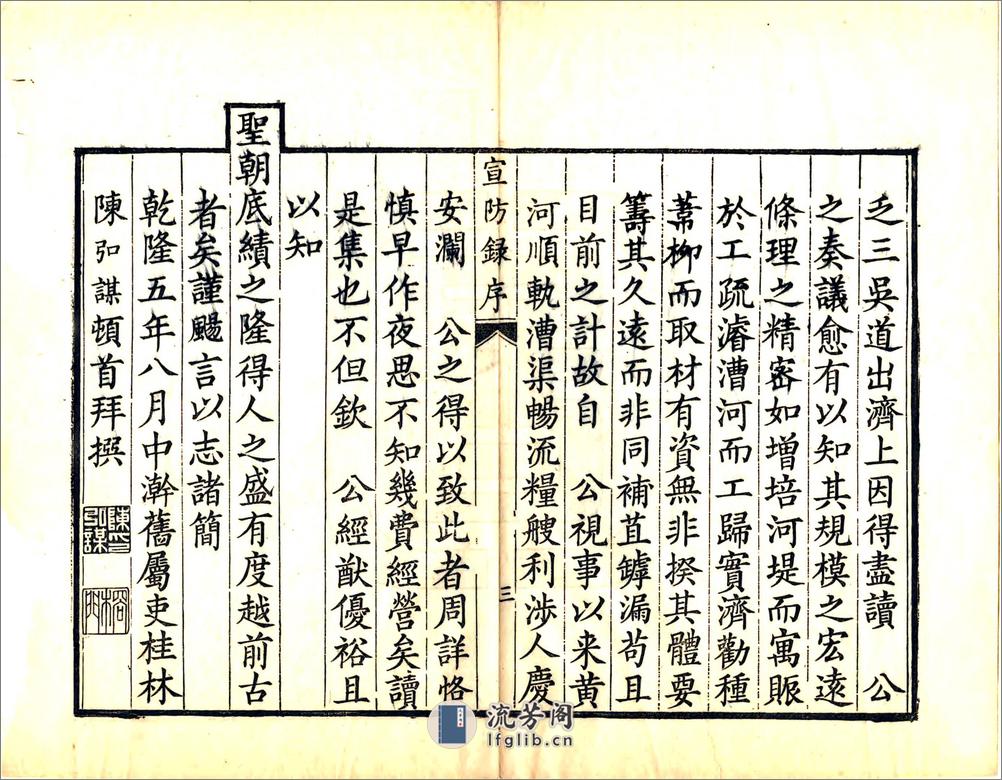 乏三吳道出濟上因得盡讀　公
之奏議愈有以知其規模之宏遠
條理之精密如增培河堤而寓賑
於工疏濬漕河而工歸實濟勸種
葦柳而取材有資無非揆其體要
籌其久遠而非同補苴罅漏苟且
目前之計故自　公視事以来黄
河順軌漕渠暢流糧艘利涉人慶
宣防録序
三
安瀾　公之得以致此者周詳恪
慎早作夜思不知幾費經營矣讀
是集也不但欽　公經猷優裕且
以知
聖朝底績之隆得人之盛有度越前古
者矣謹颺言以志諸簡
乾隆五年八月中澣舊屬吏桂林
陳弘謀頓首拜撰
陳弘謀印
榕門
流芳阁
lfglib.cn